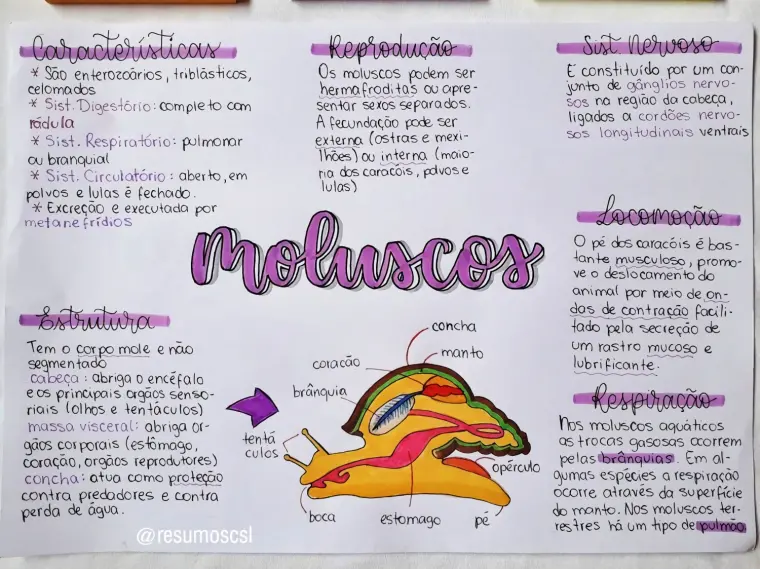 Características
* São enterozoários, triblásticos,
celomados
* Sist. Digestório: completo com
rádula
* Sist. Respiratório: pulmonar
ou branquial
* Sist. Circulatório: aberto, em
polvos e lulas é fechado.
* Excreção e executada por
metanefrídios
Reprodução
Os moluscos podem ser
hermafroditas ou apre-
sentar sexos separados.
A fecundação pode ser
externa (ostras e mexi-
lhões) ou interna (maio-
ria dos caracóis, polvos e
lulas)
Sist. Nervoso
É constituído por um con-
junto de gânglios nervo-
sos na região da cabeça,
ligados a cordões nervo-
sos longitudinais ventrais
moluscos
Locomoção
O pé dos caracóis é bas-
tante musculoso, promo-
ve o deslocamento do
animal por meio de on-
das de contração facili-
tado pela secreção de
um rastro mucoso e
lubrificante.
Estrutura
Tem o corpo mole e não
segmentado
cabeça: abriga o encéfalo
e os principais orgãos senso-
riais (olhos e tentáculos)
massa visceral: abriga ór-
gãos corporais (estômago,
coração, orgãos reprodutores)
concha: atua como proteção
contra predadores e contra
perda de água.
concha
manto
coracão
brânquia
tentá
culos
opérculo
boca
estomago
pé
Respiração
Nos moluscos aquáticos
as trocas gasosas ocorrem
pelas brânquias. Em al-
gumas espécies a respiração
ocorre através da superfície
do manto. Nos moluscos ter-
restres há um tipo de pulmão
@resumoscsl